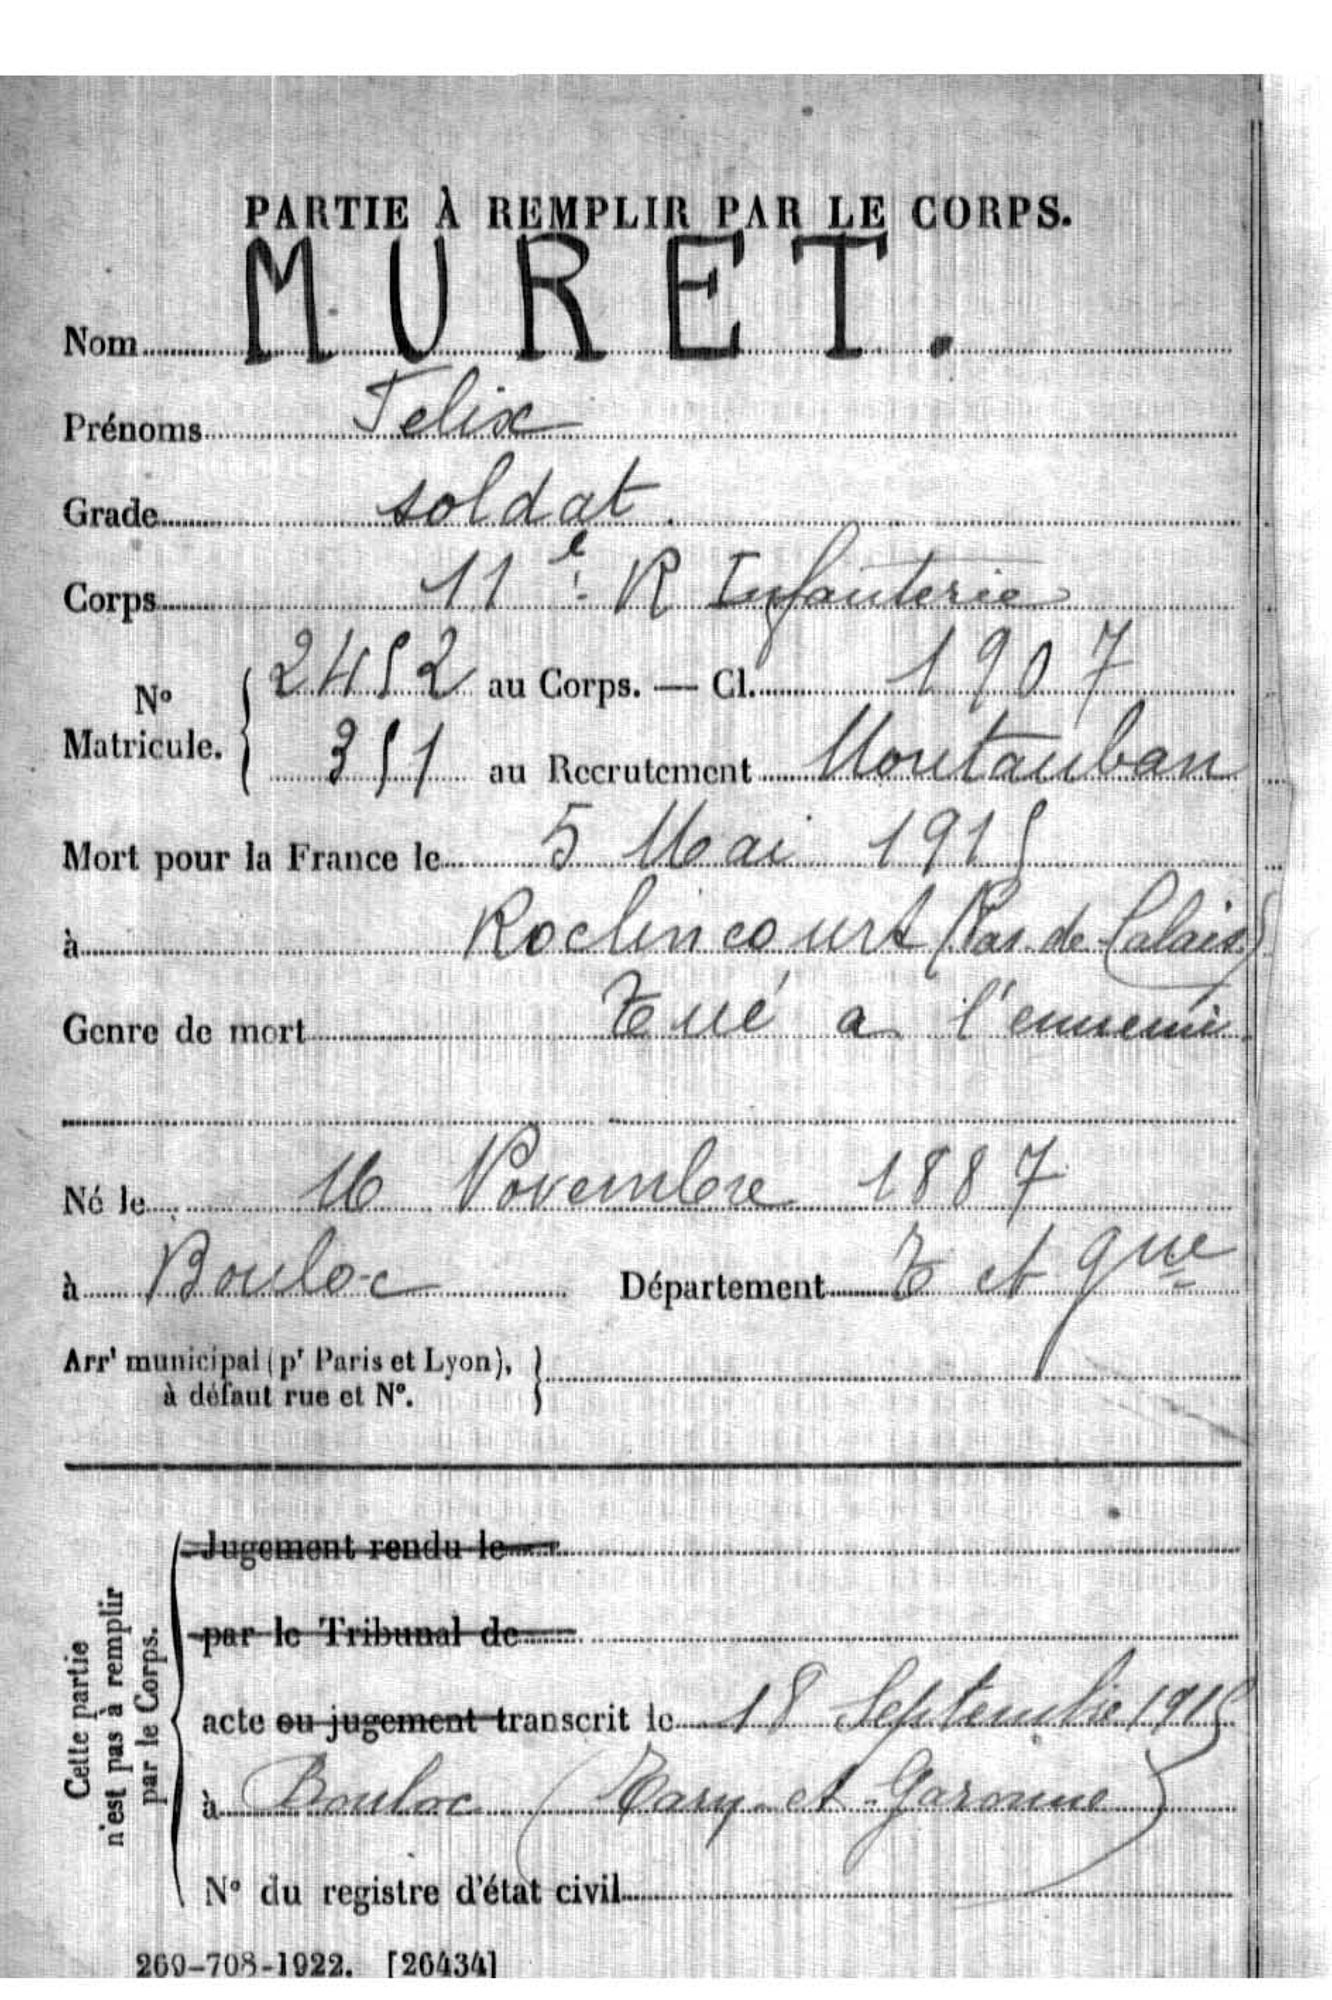 PARTIE À REMPLIR PAR LE CORPS.
Nom MURET.
Prénoms Felix
Grade soldat
Corps 11e R Infanterie
No Matricule. 2452 au Corps. — Cl. 1907
351 au Recrutement Montauban
Mort pour la France le 5 Mai 1915
à Roclincourt (Pas de Calais)
Genre de mort Tué a l'ennemi
Né le 16 Novembre 1887
à Bouloc Département T et Gne
Arrt municipal (pr Paris et Lyon),
à défaut rue et No.
Cette partie
n'est pas à remplir
par le Corps.
Jugement rendu le
par le Tribunal de
acte ou jugement transcrit le 18 Septembre 1915
à Bouloc (Tarn et Garonne)
No du registre d'état civil
269-708-1922. [26434]